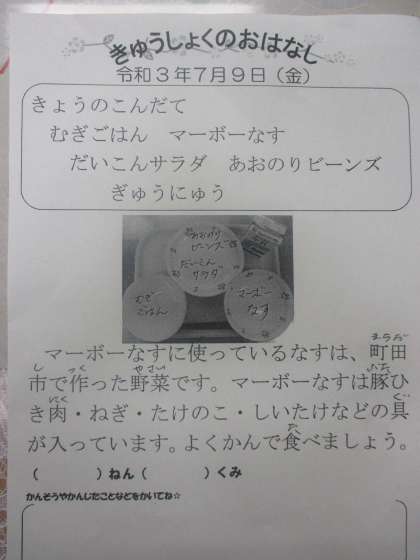 きゅうしょくのおはなし
令和3年7月9日（金）
きょうのこんだて
むぎごはん　マーボーなす
だいこんサラダ　あおのりビーンズ
ぎゅうにゅう
あおのり
ビーンズ
だいこん
サラダ
むぎ
ごはん
マーボー
なす
マーボーなすに使っているなすは、町田
市で作った野菜です。マーボーなすは豚ひ
き肉・ねぎ・たけのこ・しいたけなどの具
が入っています。よくかんで食べましょう。
（　　　　）ねん（　　　　）くみ
かんそうやかんじたことなどをかいてね☆